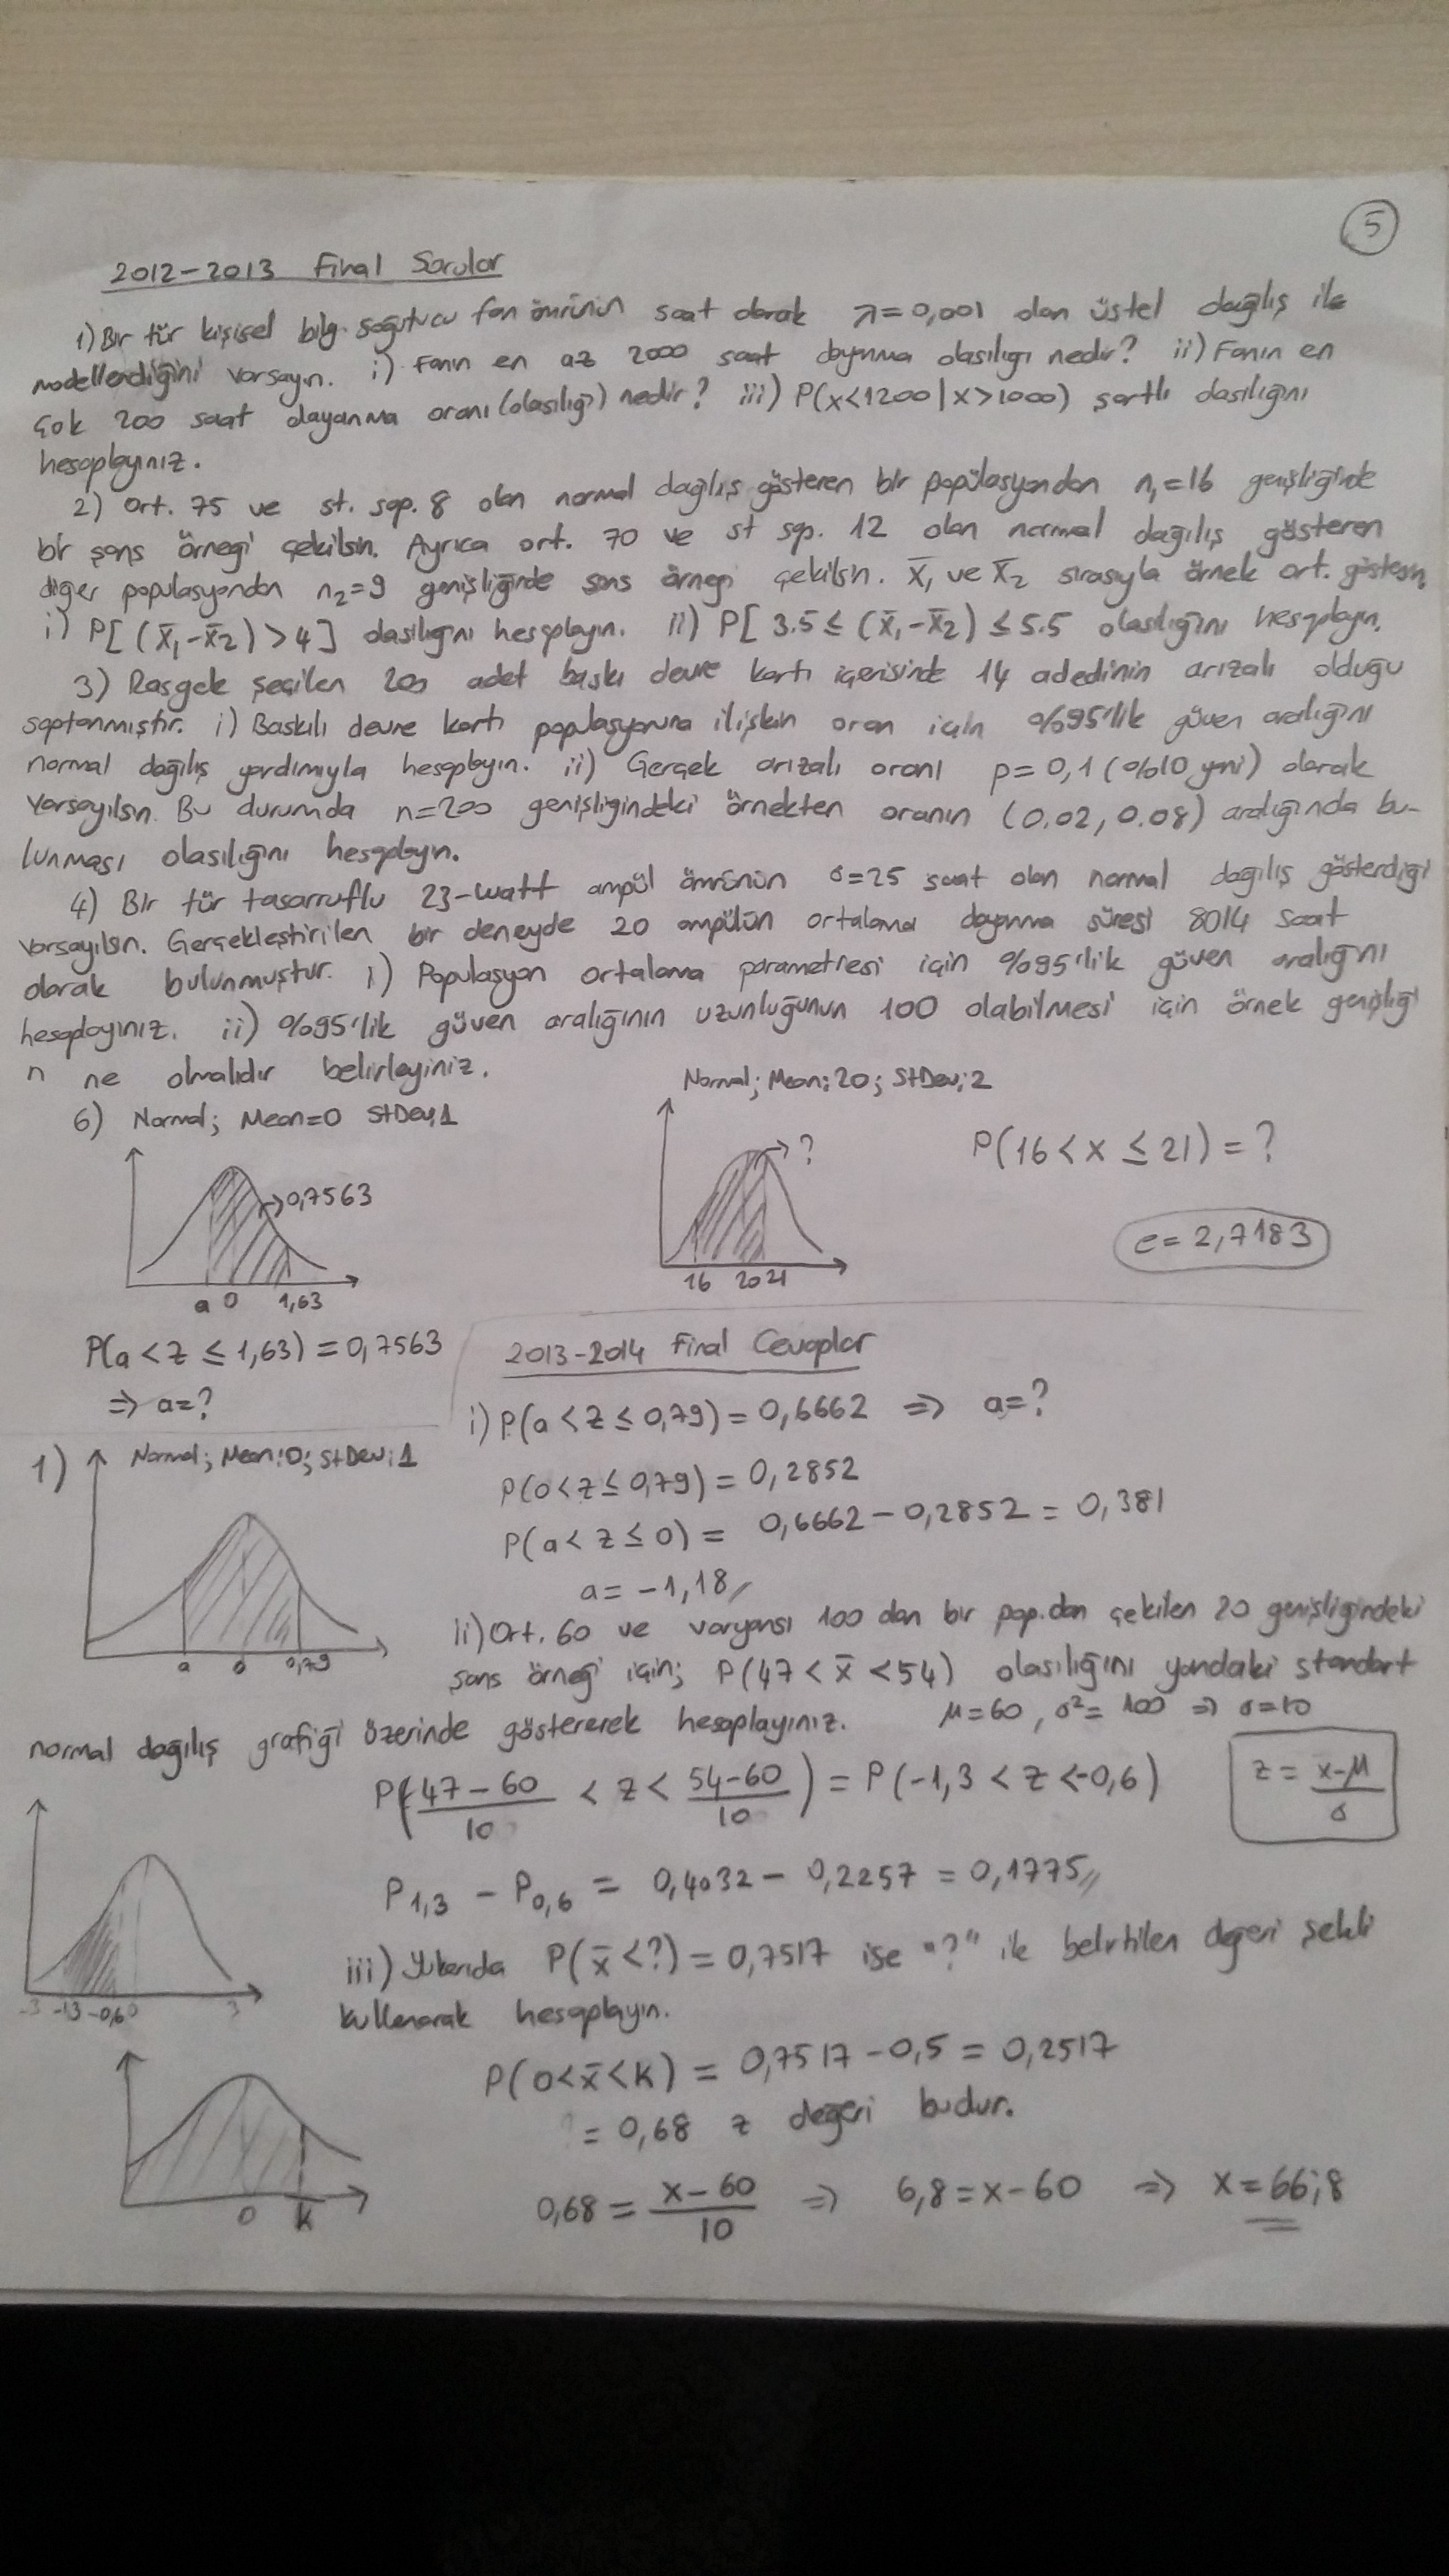 5
2012-2013 Final Sorular
1) Bir tür kişisel bilg. soğutucu fan ömrünün saat olarak λ=0,001 olan üstel dağılış ile
modellendiğini varsayın. i) Fanın en az 2000 saat dayanma olasılığı nedir? ii) Fanın en
çok 200 saat dayanma oranı (olasılığı) nedir? iii) P(x<1200|x>1000) şartlı olasılığını
hesaplayınız.
2) Ort. 75 ve st. sap. 8 olan normal dağılış gösteren bir popülasyondan n₁=16 genişliğinde
bir şans örneği çekilsin. Ayrıca ort. 70 ve st sp. 12 olan normal dağılış gösteren
diğer populasyondan n₂=9 genişliğinde şans örneği çekilsin. x̄₁ ve x̄₂ sırasıyla örnek ort. göstersin.
i) P[(x̄₁-x̄₂)>4] olasılığını hesaplayın. ii) P[3.5≤(x̄₁-x̄₂)≤5.5 olasılığını hesaplayın.
3) Rasgele seçilen 200 adet baskı devre kartı içerisinde 14 adedinin arızalı olduğu
saptanmıştır. i) Baskılı devre kartı populasyonuna ilişkin oran için %95'lik güven aralığını
normal dağılış yardımıyla hesaplayın. ii) Gerçek arızalı oranı p=0,1 (%10 yani) olarak
varsayılsın. Bu durumda n=200 genişligindeki örnekten oranın (0.02, 0.08) aralığında bu-
lunması olasılığını hesaplayın.
4) Bir tür tasarruflu 23-watt ampül ömrünün σ=25 saat olan normal dağılış gösterdiği
varsayılsın. Gerçekleştirilen bir deneyde 20 ampülün ortalama dayanma süresi 8014 saat
olarak bulunmuştur. i) Populasyon ortalama parametresi için %95'lik güven aralığını
hesaplayınız. ii) %95'lik güven aralığının uzunluğunun 100 olabilmesi için örnek genişliği
n ne olmalıdır belirleyiniz.
6) Normal; Mean=0 StDev;1
Normal; Mean:20; StDev;2
0,7563
a 0 1,63
?
16 20 21
P(16<x≤21)=?
e=2,7183
P(a<z≤1,63)=0,7563
⇒ a=?
2013-2014 Final Cevaplar
1) Normal; Mean:0; StDev:1
a 0 0,79
i) P(a<z≤0,79)=0,6662 ⇒ a=?
P(0<z≤0,79)=0,2852
P(a<z≤0)= 0,6662-0,2852=0,381
a=-1,18
ii) Ort. 60 ve varyansı 100 dan bir pop.dan çekilen 20 genişligindeki
şans örneği için; P(47<x̄<54) olasılığını yandaki standart
normal dağılış grafiği üzerinde göstererek hesaplayınız. μ=60, σ²=100 ⇒ σ=10
P(47-60/10 < z < 54-60/10) = P(-1,3<z<-0,6)
z = x-μ/σ
P1,3 - P0,6 = 0,4032-0,2257=0,1775
-3 -1,3 -0,6 0 3
iii) Yukarıda P(x̄<?)=0,7517 ise "?" ile belirtilen değeri şekli
kullanarak hesaplayın.
P(0<x̄<k) = 0,7517-0,5=0,2517
= 0,68 z değeri budur.
0 k
0,68 = x-60/10 ⇒ 6,8=x-60 ⇒ x=66,8